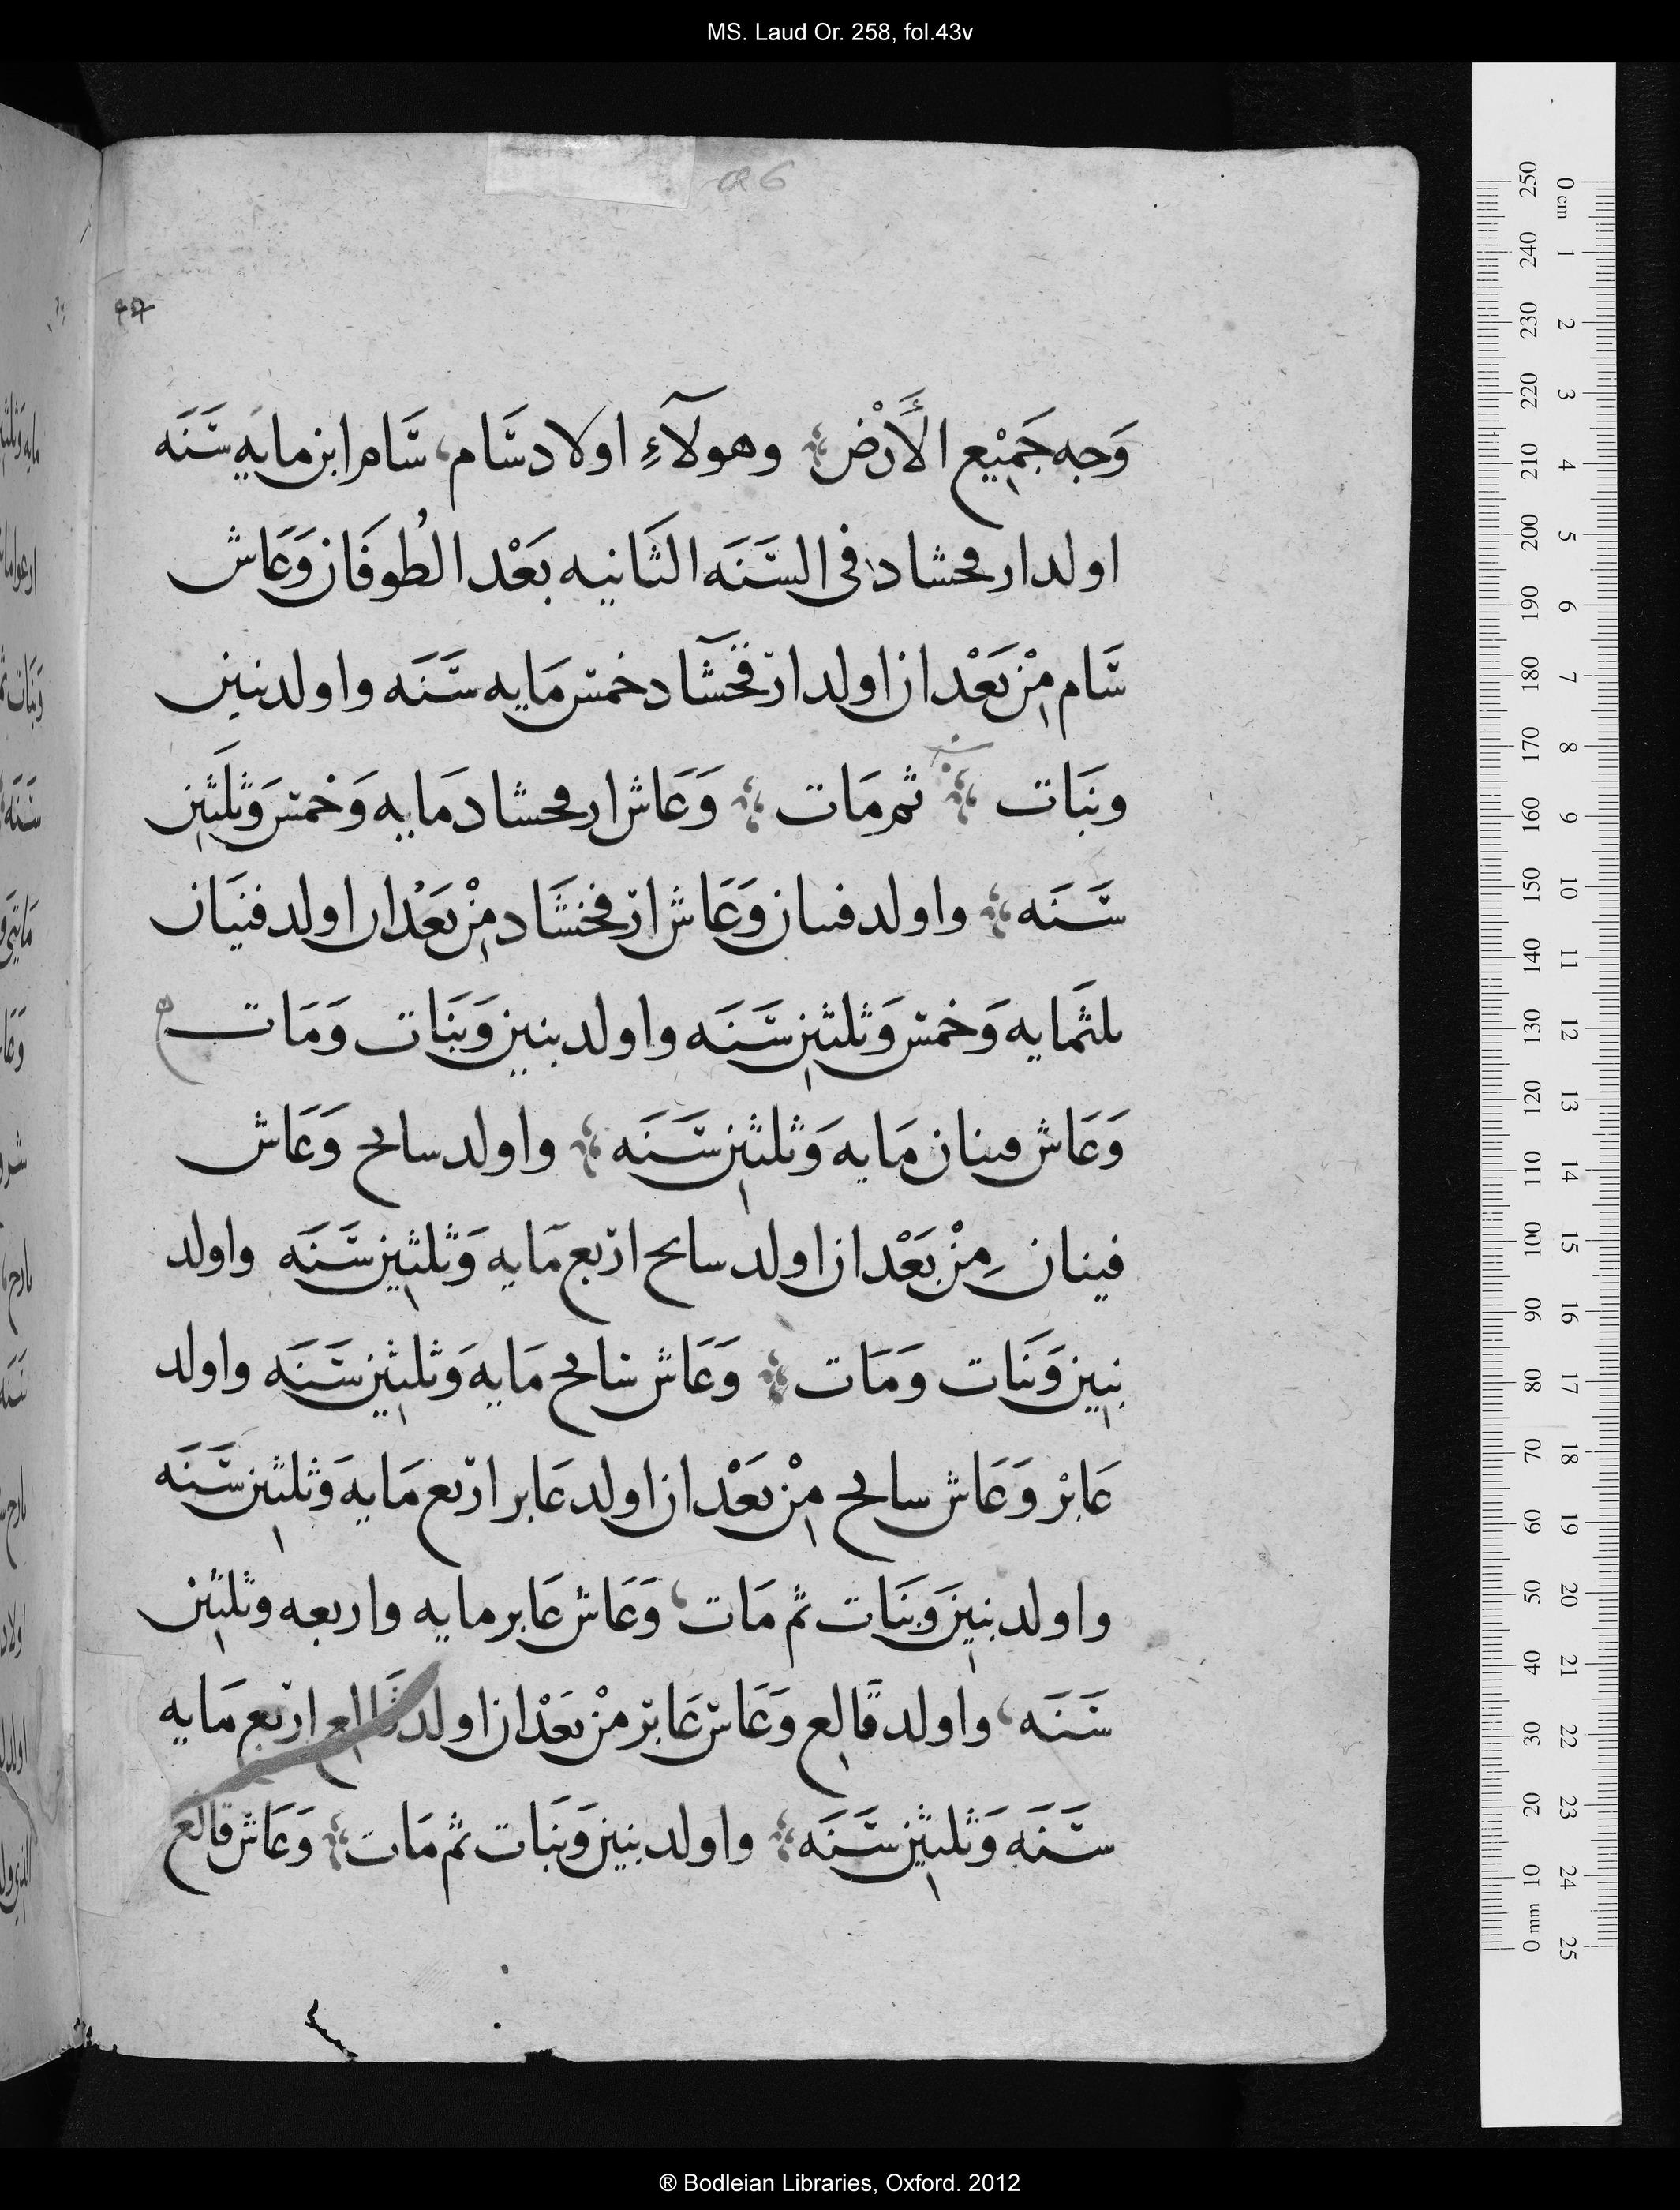 MS. Laud Or. 258, fol.43v
وَجه جَمِيْع الأَرْض وهولآءِ اولاد سَام، سَام ابن مايه سَنَه
اولد ارفحشاد فى السَنَه الثَانيه بَعْد الطُوفَان وَعَاش
سَام مِنْ بَعْد ان اولد ارفخشَاد خمس مَايه سَنَه واولد بنين
وبَنَات ثم مَات وَعَاش ارفحشاد مَايه وَخمس وَثلَثِين
سَنَه واولد فىىان وَعَاش ارفخشَاد مِنْ بَعْد ان اولد فنيَان
ىلثمَايه وَخمس وَثلثِين سَنَه واولد بنين وَبَنَات وَمَات
وَعَاش فىنان مَايه وَثلثِين سَنَه واولد سالح وَعَاش
فينان مِنْ بَعْد ان اولد سالح اربع مَايه وَثلثِين سَنَه واولد
بنِين وَبَنَات وَمَات وَعَاش سَالح مَايه وَثلثِين سَنَه واولد
عَابرْ وَعَاش سالح مِنْ بَعْد ان اولد عَابر اربع مَايه وَثلثِين سَنَه
واولد بنِين وَبَنَات ثم مَات، وَعَاش عَابر مايه واربعه وثلثِين
سَنَه، واولد قَالِع وَعَاش عَابر مِنْ بَعْد ان اولد قَالِع اربع مَايه
سَنَه وَثلثِين سَنَه واولد بنين وَبَنَات ثم مَات وَعَاش قالع
® Bodleian Libraries, Oxford. 2012